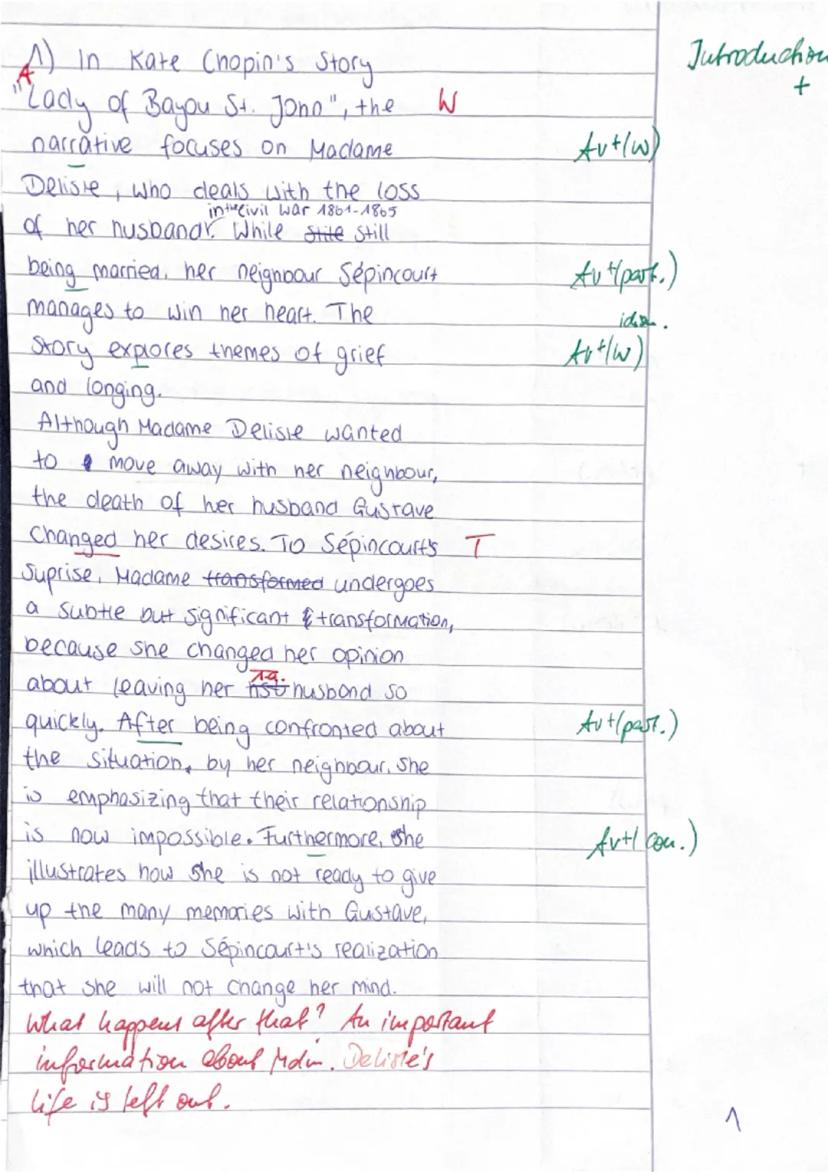 Introduction
+
1) In Kate Chopin's Story
A
"Lady of Bayou St. John", the W
narrative focuses on Madame Av+(w)
Delisle, who deals with the loss
in the Civil War 1861-1865
of her husband. While still
being married, her neighbour Sépincourt Av+(part.)
manages to win her heart. The
story explores themes of grief Av+(w)
and longing.
Although Madame Delisle wanted
to move away with her neighbour,
the death of her husband Gustave
changed her desires. To Sépincourt's T
suprise, Madame transformed undergoes
a subtle but significant transformation,
because she changed her opinion
about leaving her husband so
quickly. After being confronted about Av+(part.)
the situation, by her neighbour, she
is emphasizing that their relationship
is now impossible. Furthermore, she Av+(con.)
illustrates how she is not ready to give
up the many memories with Gustave,
which leads to Sépincourt's realization
that she will not change her mind.
What happens after that? An important
information about Mdm. Delisle's
life is left out.
1